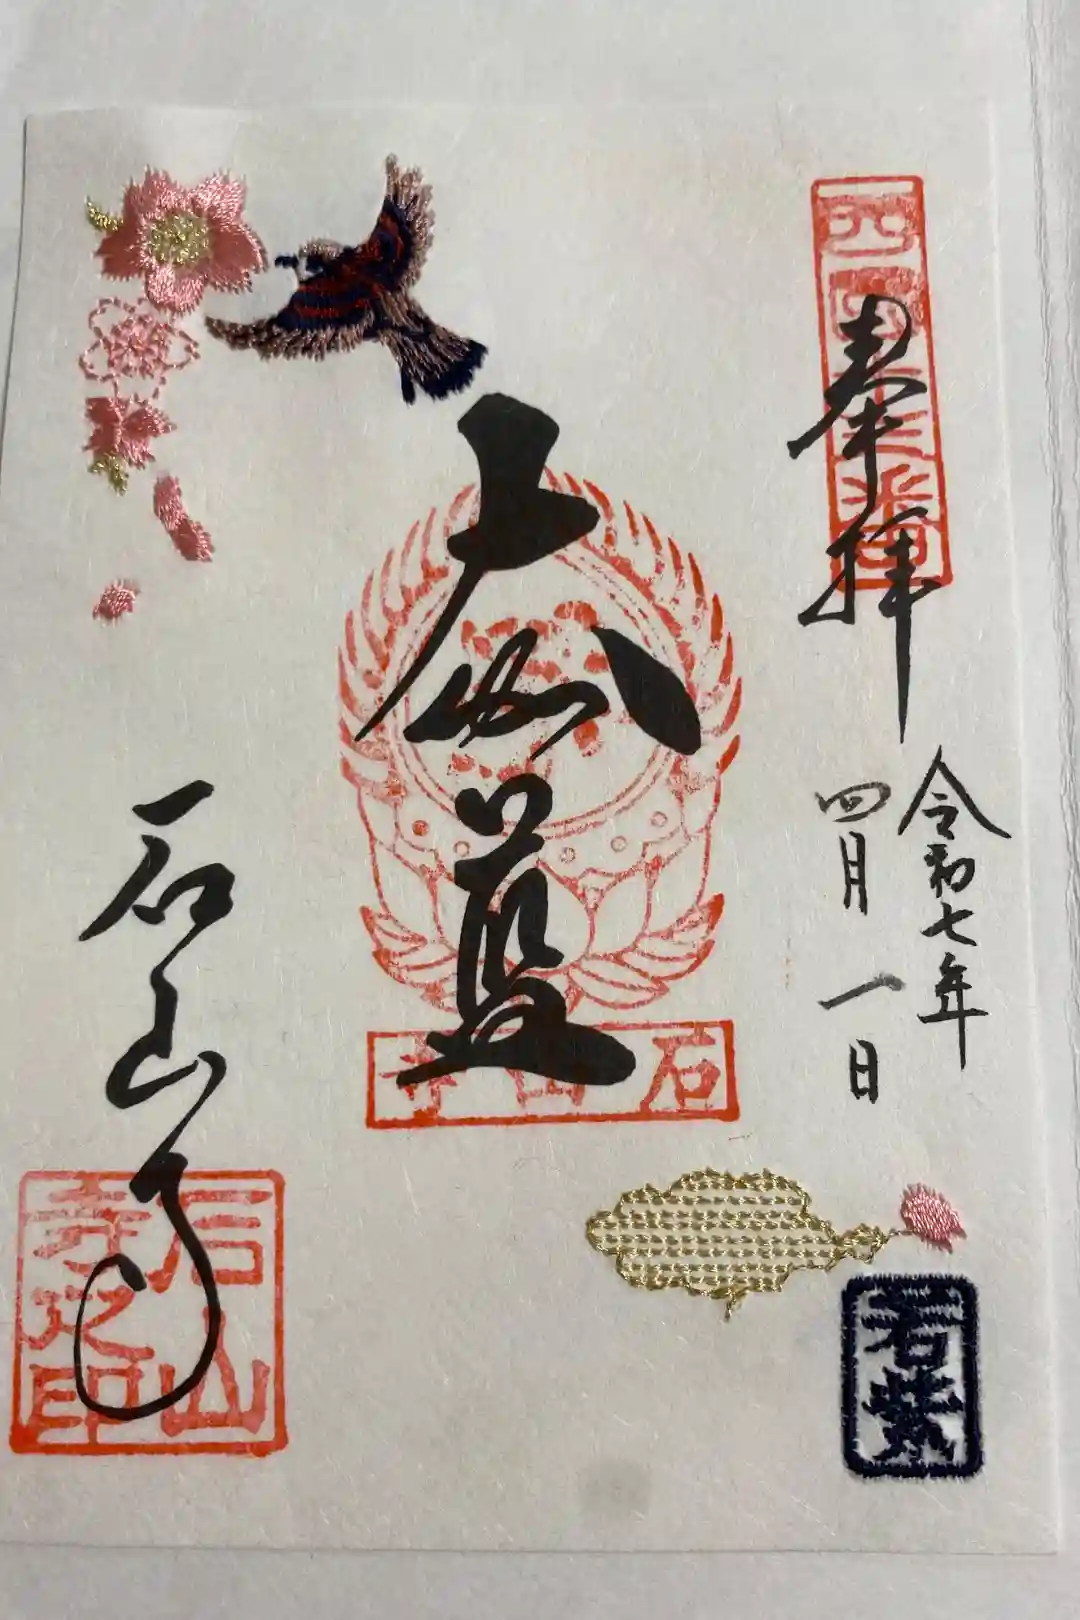 西国十三番
奉拝
令和七年
四月一日
大伽藍
石山寺
石山寺
石山寺之印
若紫